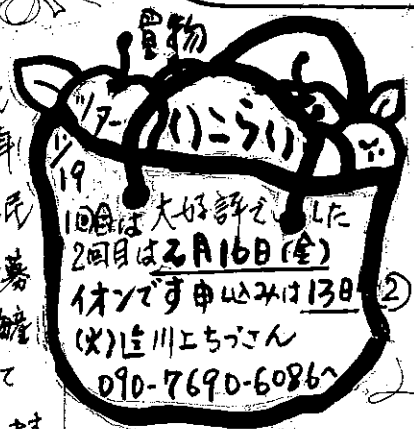 買物
ツアー
いこらい
1/19
1回目は大好評でした
2回目は2月16日(金)
イオンです申込みは13日
(火)迄川上ちづさん
090-7690-6086へ
②
民
募
て